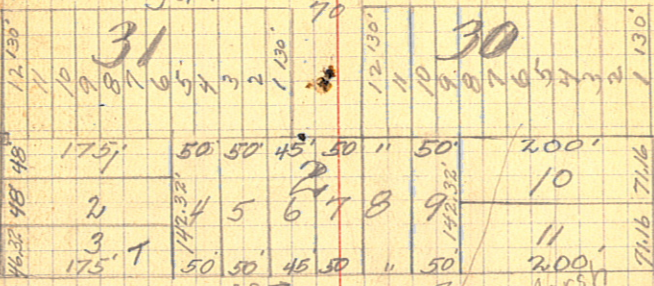 70
31 30
12 130' 11 10 9 8 7 6 5 4 3 2 1 130' 12 130' 11 10 9 8 7 6 5 4 3 2 1 130'
48 175' 1 50' 50' 45' 50 " 50' 200'
2 10 71.16
48' 2 142.32' 4 5 6 7 8 9 142.32'
46.32 3 T 11 71.16
175' 50' 50' 45' 50 " 50' 200'